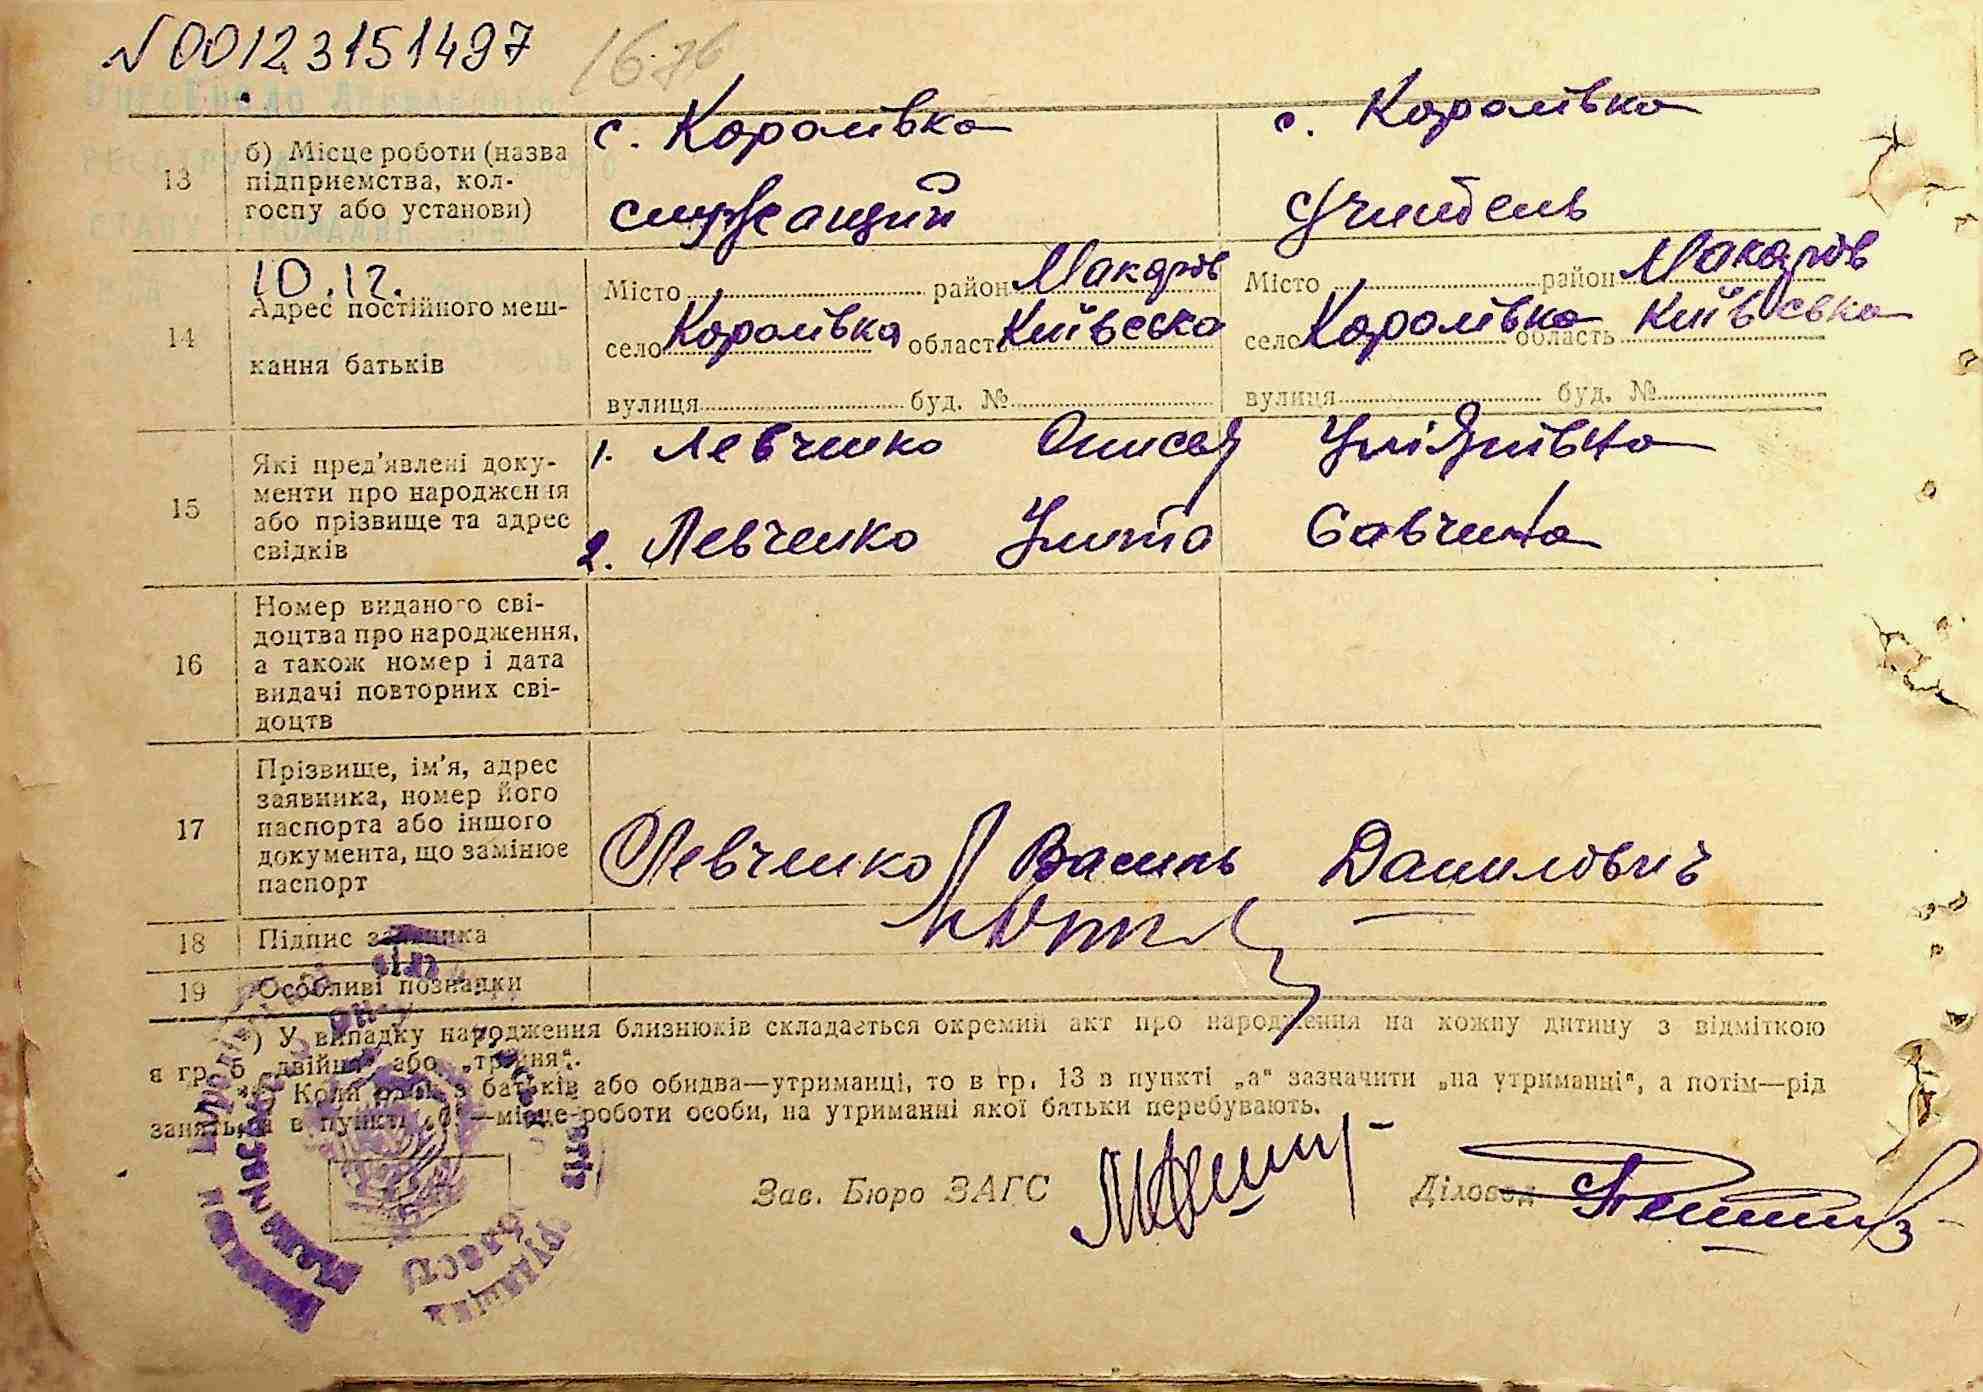 N00123151497 1676
с. Королівка с. Королівка
13 б) Місце роботи (назва
підприємства, кол-
госпу або установи)
служащий Учитель
10.12.
14 Адрес постійного меш-
кання батьків
Місто район Макарів Місто район Макарів
село Королівка область Київська село Королівка область Київська
вулиця буд. № вулиця буд. №
15 Які пред'явлені доку-
менти про народження
або прізвище та адрес
свідків
1. Левченко Онися
2. Левченко Улита Савчина
16 Номер виданого сві-
доцтва про народження,
а також номер і дата
видачі повторних сві-
доцтв
17 Прізвище, ім'я, адрес
заявника, номер його
паспорта або іншого
документа, що замінює
паспорт
Левченко Василь Данилович
18 Підпис заявника
19 Особливі познаки
*) У випадку народження близнюків складається окремий акт про народження на кожну дитину з відміткою
в гр. 5 „двійня“ або „трійня“.
Коли один з батьків або обидва—утриманці, то в гр. 13 в пункті „а“ зазначити „на утриманні“, а потім—рід
занять, а в пункті „б“—місце роботи особи, на утриманні якої батьки перебувають.
Зав. Бюро ЗАГС Діловод